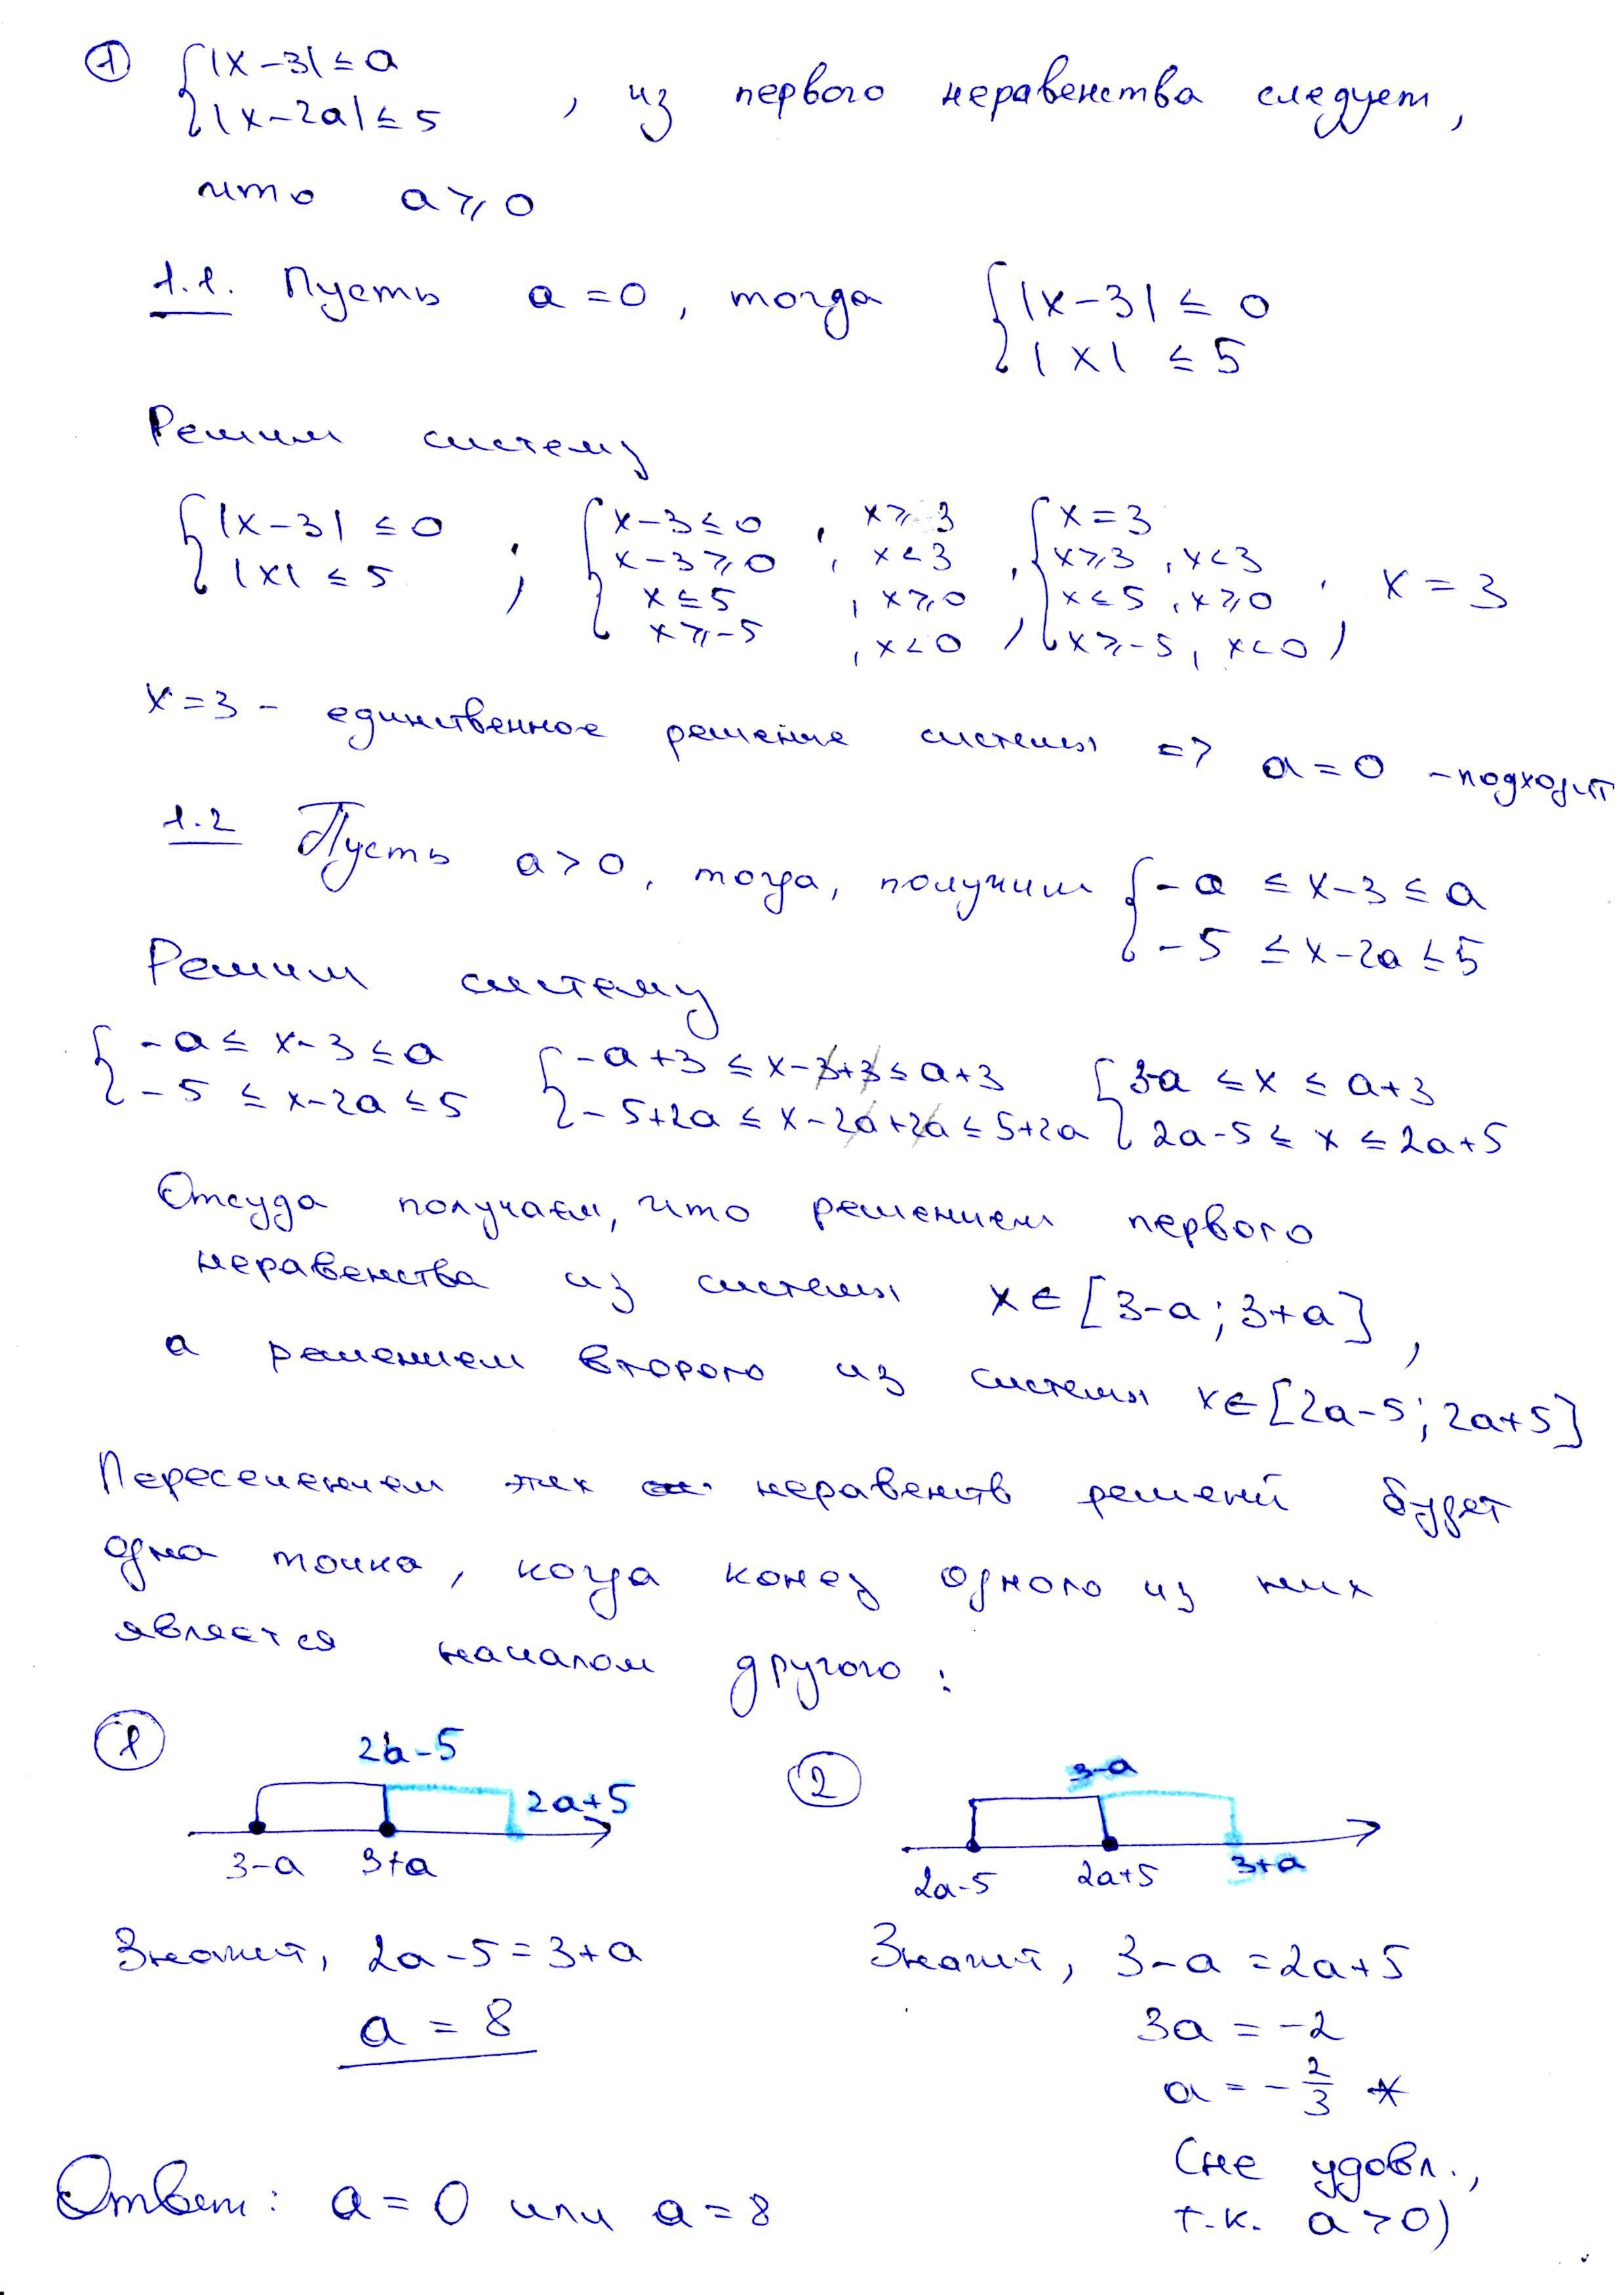 ① { |x-3| ≤ a
{ |x-2a| ≤ 5 , из первого неравенства следует,
что a ⩾ 0
1.1. Пусть a = 0, тогда { |x-3| ≤ 0
{ |x| ≤ 5
Решим систему
{ |x-3| ≤ 0 ; { x-3 ≤ 0 , x ⩾ 3 { x = 3
{ |x| ≤ 5 { x-3 ⩾ 0 , x < 3 , { x ⩾ 3 , x < 3
x ≤ 5 , x ⩾ 0 x ≤ 5 , x ⩾ 0 ; x = 3
x ⩾ -5 , x < 0 x ⩾ -5 , x < 0
x = 3 - единственное решение системы => a = 0 - подходит
1.2 Пусть a > 0, тогда, получим { -a ≤ x-3 ≤ a
{ -5 ≤ x-2a ≤ 5
Решим систему
{ -a ≤ x-3 ≤ a { -a+3 ≤ x-3+3 ≤ a+3 { 3-a ≤ x ≤ a+3
{ -5 ≤ x-2a ≤ 5 { -5+2a ≤ x-2a+2a ≤ 5+2a { 2a-5 ≤ x ≤ 2a+5
Отсуда получаем, что решением первого
неравенства из системы x ∈ [3-a; 3+a] ,
а решением второго из системы x ∈ [2a-5; 2a+5]
Пересечением этих неравенств решений будет
одна точка, когда конец одного из них
является началом другого:
① 2a-5
2a+5
3-a 3+a
② 3-a
2a-5 2a+5 3+a
Значит, 2a-5 = 3+a
a = 8
Значит, 3-a = 2a+5
3a = -2
a = -2/3 *
(не удовл.,
т.к. a > 0)
Ответ: a = 0 или a = 8